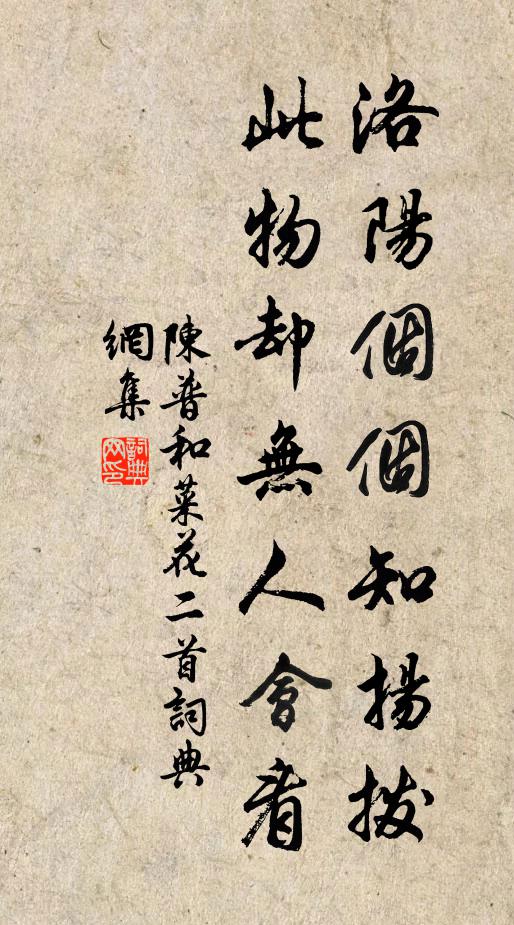 洛陽個個知揚拨
此物却無人會看
陳普和菜花二首詞典
網集
詞典網印